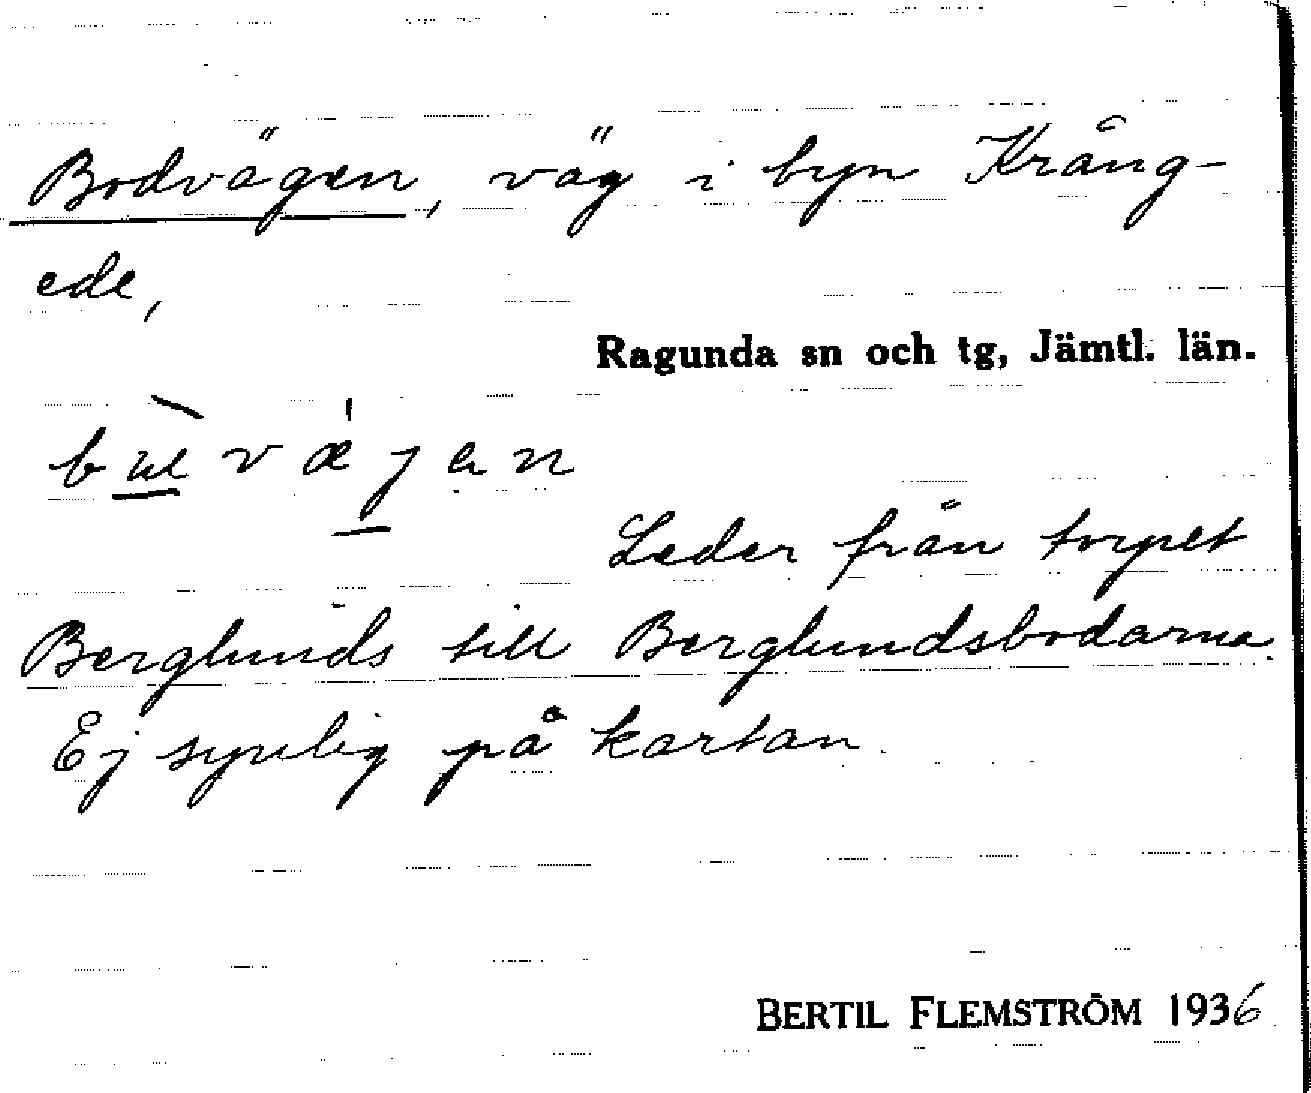 Bodvägen, väg i byn Kräng-
ede,
Ragunda sn och tg, Jämtl. län.
Leder från torpet
Berglunds till Berglundsbodarna.
Ej synlig på kartan.
BERTIL FLEMSTRÖM 1936